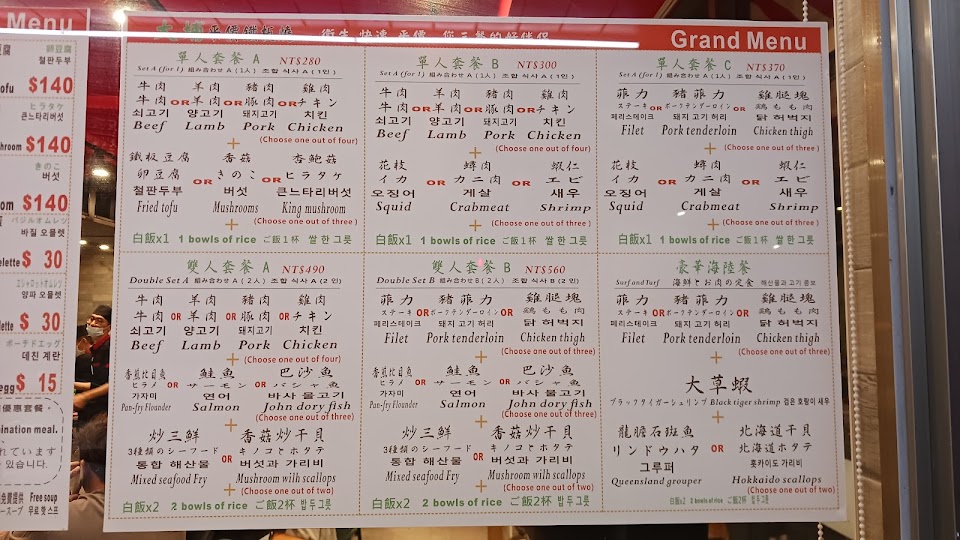 Menu
Grand Menu
平價鐵板燒 衛生 快速 平價 您三餐的好伴侶
豆腐 卵豆腐
철판두부
ofu $140
ヒラタケ
큰느타리버섯
hroom $140
きのこ
버섯
oom $140
バジルオムレツ
바질 오믈렛
elette $ 30
エシャロットオムレツ
양파 오믈렛
lette $ 30
ポーチドエッグ
데친 계란
egg $ 15
優惠套餐
bination meal.
れています
있습니다.
免費提供 Free soup
スープ 무료 핫 스프
單人套餐 A NT$280
Set A (for 1) 組み合わせ A (1人) 조합 식사 A (1인)
牛肉 羊肉 豬肉 雞肉
牛肉 OR 羊肉 OR 豚肉 OR チキン
쇠고기 양고기 돼지고기 치킨
Beef Lamb Pork Chicken
+ (Choose one out of four)
鐵板豆腐 香菇 杏鮑菇
卵豆腐 OR きのこ OR ヒラタケ
철판두부 버섯 큰느타리버섯
Fried tofu Mushrooms King mushroom
+ (Choose one out of three )
白飯x1 1 bowls of rice ご飯1杯 쌀 한 그릇
單人套餐 B NT$300
Set A (for 1) 組み合わせ A (1人) 조합 식사 A (1인)
牛肉 羊肉 豬肉 雞肉
牛肉 OR 羊肉 OR 豚肉 OR チキン
쇠고기 양고기 돼지고기 치킨
Beef Lamb Pork Chicken
+ (Choose one out of four)
花枝 蟳肉 蝦仁
イカ OR カニ肉 OR エビ
오징어 게살 새우
Squid Crabmeat Shrimp
+ (Choose one out of three )
白飯x1 1 bowls of rice ご飯1杯 쌀 한 그릇
單人套餐 C NT$370
Set A (for 1) 組み合わせ A (1人) 조합 식사 A (1인)
菲力 豬菲力 雞腿塊
ステーキ OR ポークテンダーロイン OR 鶏もも肉
페리스테이크 돼지 고기 허리 닭 허벅지
Filet Pork tenderloin Chicken thigh
+ (Choose one out of three)
花枝 蟳肉 蝦仁
イカ OR カニ肉 OR エビ
오징어 게살 새우
Squid Crabmeat Shrimp
+ (Choose one out of three )
白飯x1 1 bowls of rice ご飯1杯 쌀 한 그릇
雙人套餐 A NT$490
Double Set A 組み合わせ A (2人) 조합 식사 A (2인)
牛肉 羊肉 豬肉 雞肉
牛肉 OR 羊肉 OR 豚肉 OR チキン
쇠고기 양고기 돼지고기 치킨
Beef Lamb Pork Chicken
+ (Choose one out of four)
香煎比目魚 鮭魚 巴沙魚
ヒラメ OR サーモン OR バシャ魚
가자미 연어 바사 물고기
Pan-fry Flounder Salmon John dory fish
+ (Choose one out of three)
炒三鮮 香菇炒干貝
3種類のシーフード OR キノコとホタテ
통합 해산물 버섯과 가리비
Mixed seafood Fry Mushroom wilh scallops
+ (Choose one out of two)
白飯x2 2 bowls of rice ご飯2杯 밥 두 그릇
雙人套餐 B NT$560
Double Set B 組み合わせ B (2人) 조합 식사 B (2인)
菲力 豬菲力 雞腿塊
ステーキ OR ポークテンダーロイン OR 鶏もも肉
페리스테이크 돼지 고기 허리 닭 허벅지
Filet Pork tenderloin Chicken thigh
+ (Choose one out of three)
香煎比目魚 鮭魚 巴沙魚
ヒラメ OR サーモン OR バシャ魚
가자미 연어 바사 물고기
Pan-fry Flounder Salmon John dory fish
+ (Choose one out of three)
炒三鮮 香菇炒干貝
3種類のシーフード OR キノコとホタテ
통합 해산물 버섯과 가리비
Mixed seafood Fry Mushroom wilh scallops
+ (Choose one out of two)
白飯x2 2 bowls of rice ご飯2杯 밥 두 그릇
豪華海陸餐
Surf and Turf 海鮮とお肉の定食 해산물과 고기 콤보
菲力 豬菲力 雞腿塊
ステーキ OR ポークテンダーロイン OR 鶏もも肉
페리스테이크 돼지 고기 허리 닭 허벅지
Filet Pork tenderloin Chicken thigh
+ (Choose one out of three)
大草蝦
ブラックタイガーシュリンプ Black tiger shrimp 검은 호랑이 새우
+
龍膽石斑魚 北海道干貝
リンドウハタ OR 北海道ホタテ
그루퍼 홋카이도 가리비
Queensland grouper Hokkaido scallops
+ (Choose one out of two)
白飯x2 2 bowls of rice ご飯2杯 밥 두 그릇